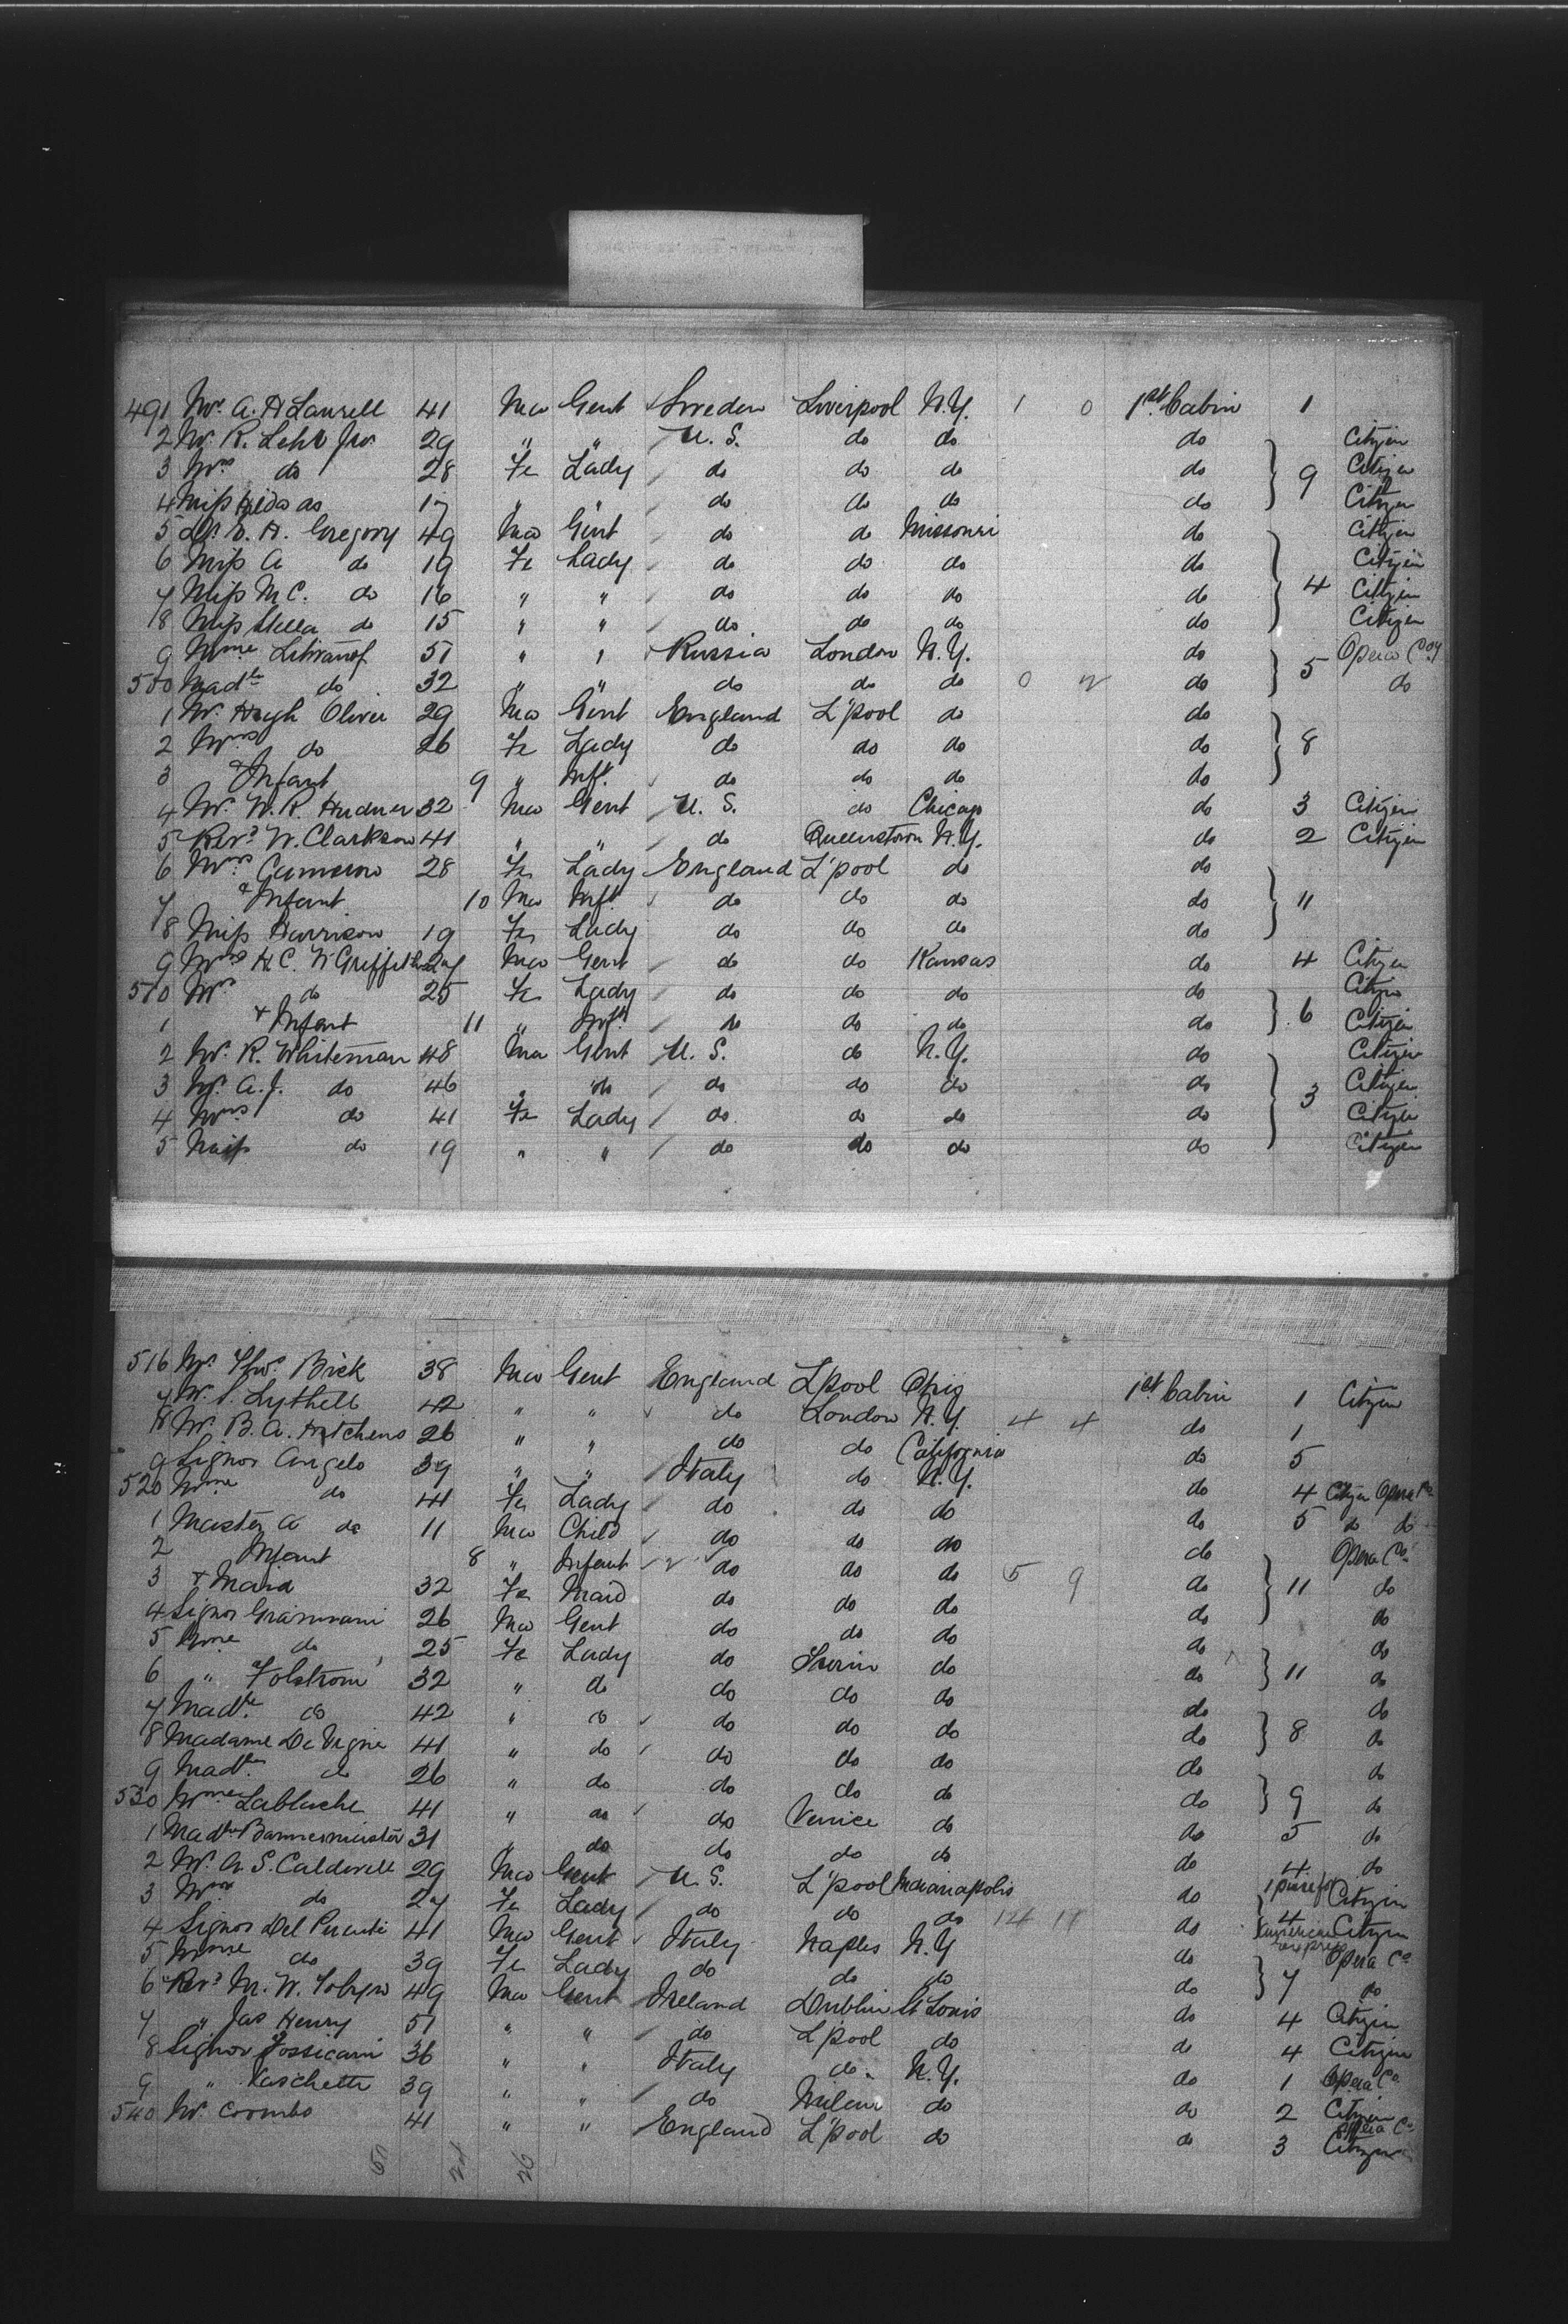 491 Mr. A. H Laurell 41 Ma Gent Sweden Liverpool N.Y. 1 0 1st Cabin 1
2 Mr. R. Lehr Jr. 29 " " U. S. do do do Citizen
3 Mrs do 28 Fe Lady do do do do 9 Citizen
4 Miss do 17 " " do do do do Citizen
5 Dr. E. H. Gregory 49 Ma Gent do do Missouri do Citizen
6 Miss A do 19 Fe Lady do do do do Citizen
7 Miss M C. do 16 " " do do do do 4 Citizen
8 Miss Stella do 15 " " do do do do Citizen
9 Mme Litvanof 51 " " Russia London N.Y. do Opera Coy
500 Madlle do 32 " " do do do 0 2 do 5 do
1 Mr. Hugh Oliver 29 Ma Gent England L'pool do do
2 Mrs do 26 Fe Lady do do do do 8
3 & Infant 9 " Inft. do do do do
4 Mr. W. R. Hudner 32 Ma Gent U. S. do Chicago do 3 Citizen
5 Revd W. Clarkson 41 " " do Queenstown N.Y. do 2 Citizen
6 Mrs. 28 Fe Lady England L'pool do do
7 & Infant 10 Ma Inft do do do do 11
8 Miss Harrison 19 Fe Lady do do do do
9 H. C. W Griffith 27 Ma Gent do do Kansas do 4 Citizen
510 Mrs do 25 Fe Lady do do do do Citizen
1 & Infant 11 " Inft do do do do 6 Citizen
2 Mr. R. Whiteman 48 Ma Gent U. S. do N.Y. do Citizen
3 Mr. A. J. do 46 " do do do do do Citizen
4 Mrs do 41 Fe Lady do do do do 3 Citizen
5 Miss do 19 " " do do do do Citizen
516 Mr. Thos. Brick 38 Ma Gent England L'pool Ohio 1st Cabin 1 Citizen
7 Mr. Lythell 42 " " do London N.Y. 4 4 do 1
8 Mr. B. A. Hitchens 26 " " do do California do 5
9 Signor Angelo 39 " " Italy do N.Y. do 4 Citizen Opera Co
520 Mme do 41 Fe Lady do do do do 5 do do
1 Master A do 11 Ma Child do do do do Opera Co
2 Infant 8 " Infant do do do 5 9 do 11 do
3 & Maid 32 Fe Maid do do do do do
4 Signor 26 Ma Gent do do do do do
5 Mme do 25 Fe Lady do Turin do do 11 do
6 " Folstrom 32 " do do do do do do
7 Madlle do 42 " do do do do do 8 do
8 Madame De Vigne 41 " do do do do do do
9 Madlle do 26 " do do do do do 9 do
530 Mme Lablache 41 " do do Venice do do 5 do
1 Madlle Bauermeister 31 " do do do do do 4 do
2 Mr. A S. Caldwell 29 Ma Gent U. S. L'pool Indianapolis do Citizen
3 Mrs do 27 Fe Lady do do do 14 11 do 4 Citizen
4 Signor Del Puente 41 Ma Gent Italy Naples N.Y do Opera Co
5 Mme do 39 Fe Lady do do do do 7 do
6 Revd M. W. Tobyn 49 Ma Gent Ireland Dublin St Louis do 4 Citizen
7 " Jas Henry 51 " " do L'pool do do 4 Citizen
8 Signor 36 " " Italy do N.Y. do 1 Opera Co
9 " Vaschetti 39 " " do Milan do do 2 Citizen Opera Co
540 Mr. Coombs 41 " " England L'pool do do 3 Citizen